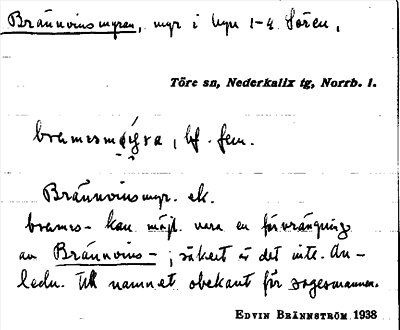 Brännvinsmyren, myr i byn 1-4 Sören,
Töre sn, Nederkalix tg, Norrb. l.
bf. fem.
Brännvinsmyr. ek.
brames- kan möjl. vara en förvrängning
av Brännvins-; säkert är det inte. An-
ledn. till namnet obekant för sagesmannen.
EDVIN BRÄNNSTRÖM 1938